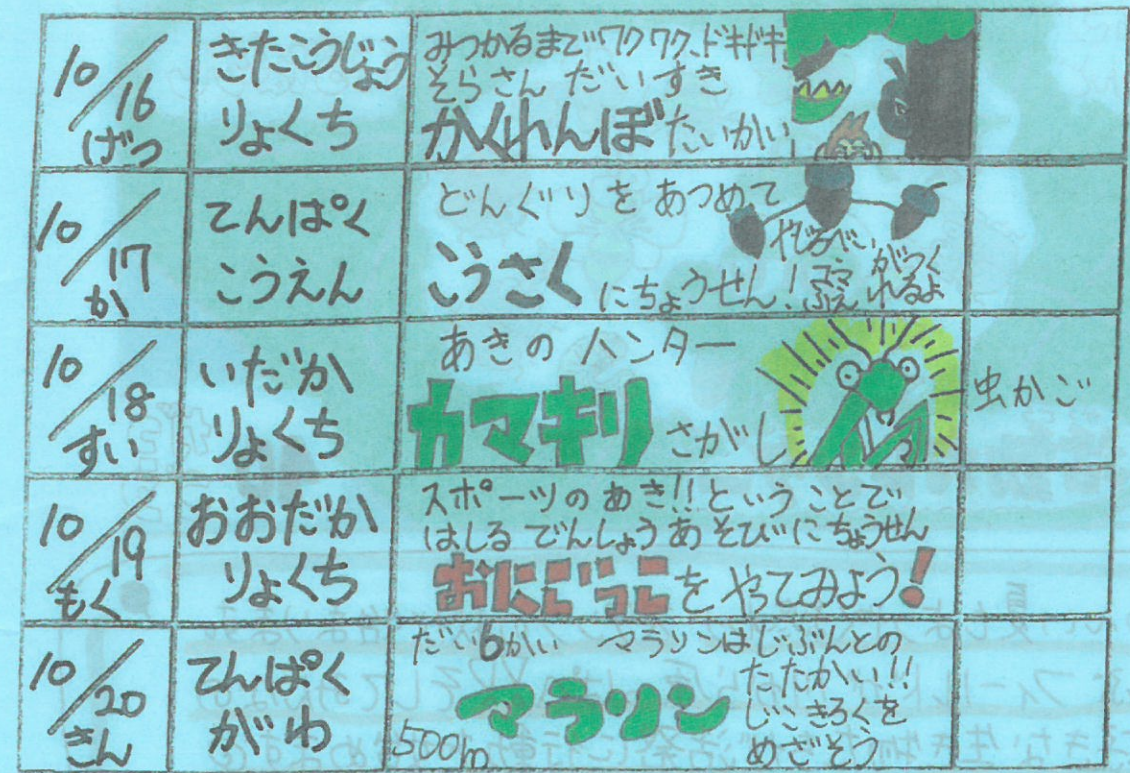 10/16
げつ
きたこうじょう
りょくち
みつかるまでワクワク、ドキドキ
そらさん だいすき
かくれんぼ たいかい
10/17
か
てんぱく
こうえん
どんぐりをあつめて
こうさく にちょうせん!
やじろべい
コマ
ぶえ
がつく
れるよ
10/18
すい
いだか
りょくち
あきのハンター
カマキリ さがし
虫かご
10/19
もく
おおだか
りょくち
スポーツのあき!!ということで
はしるでんしょうあそびにちょうせん
おにごっこをやってみよう!
10/20
きん
てんぱく
がわ
だい6かい マラソンはじぶんとの
たたかい!!
マラソン
じこきろくを
めざそう
500m